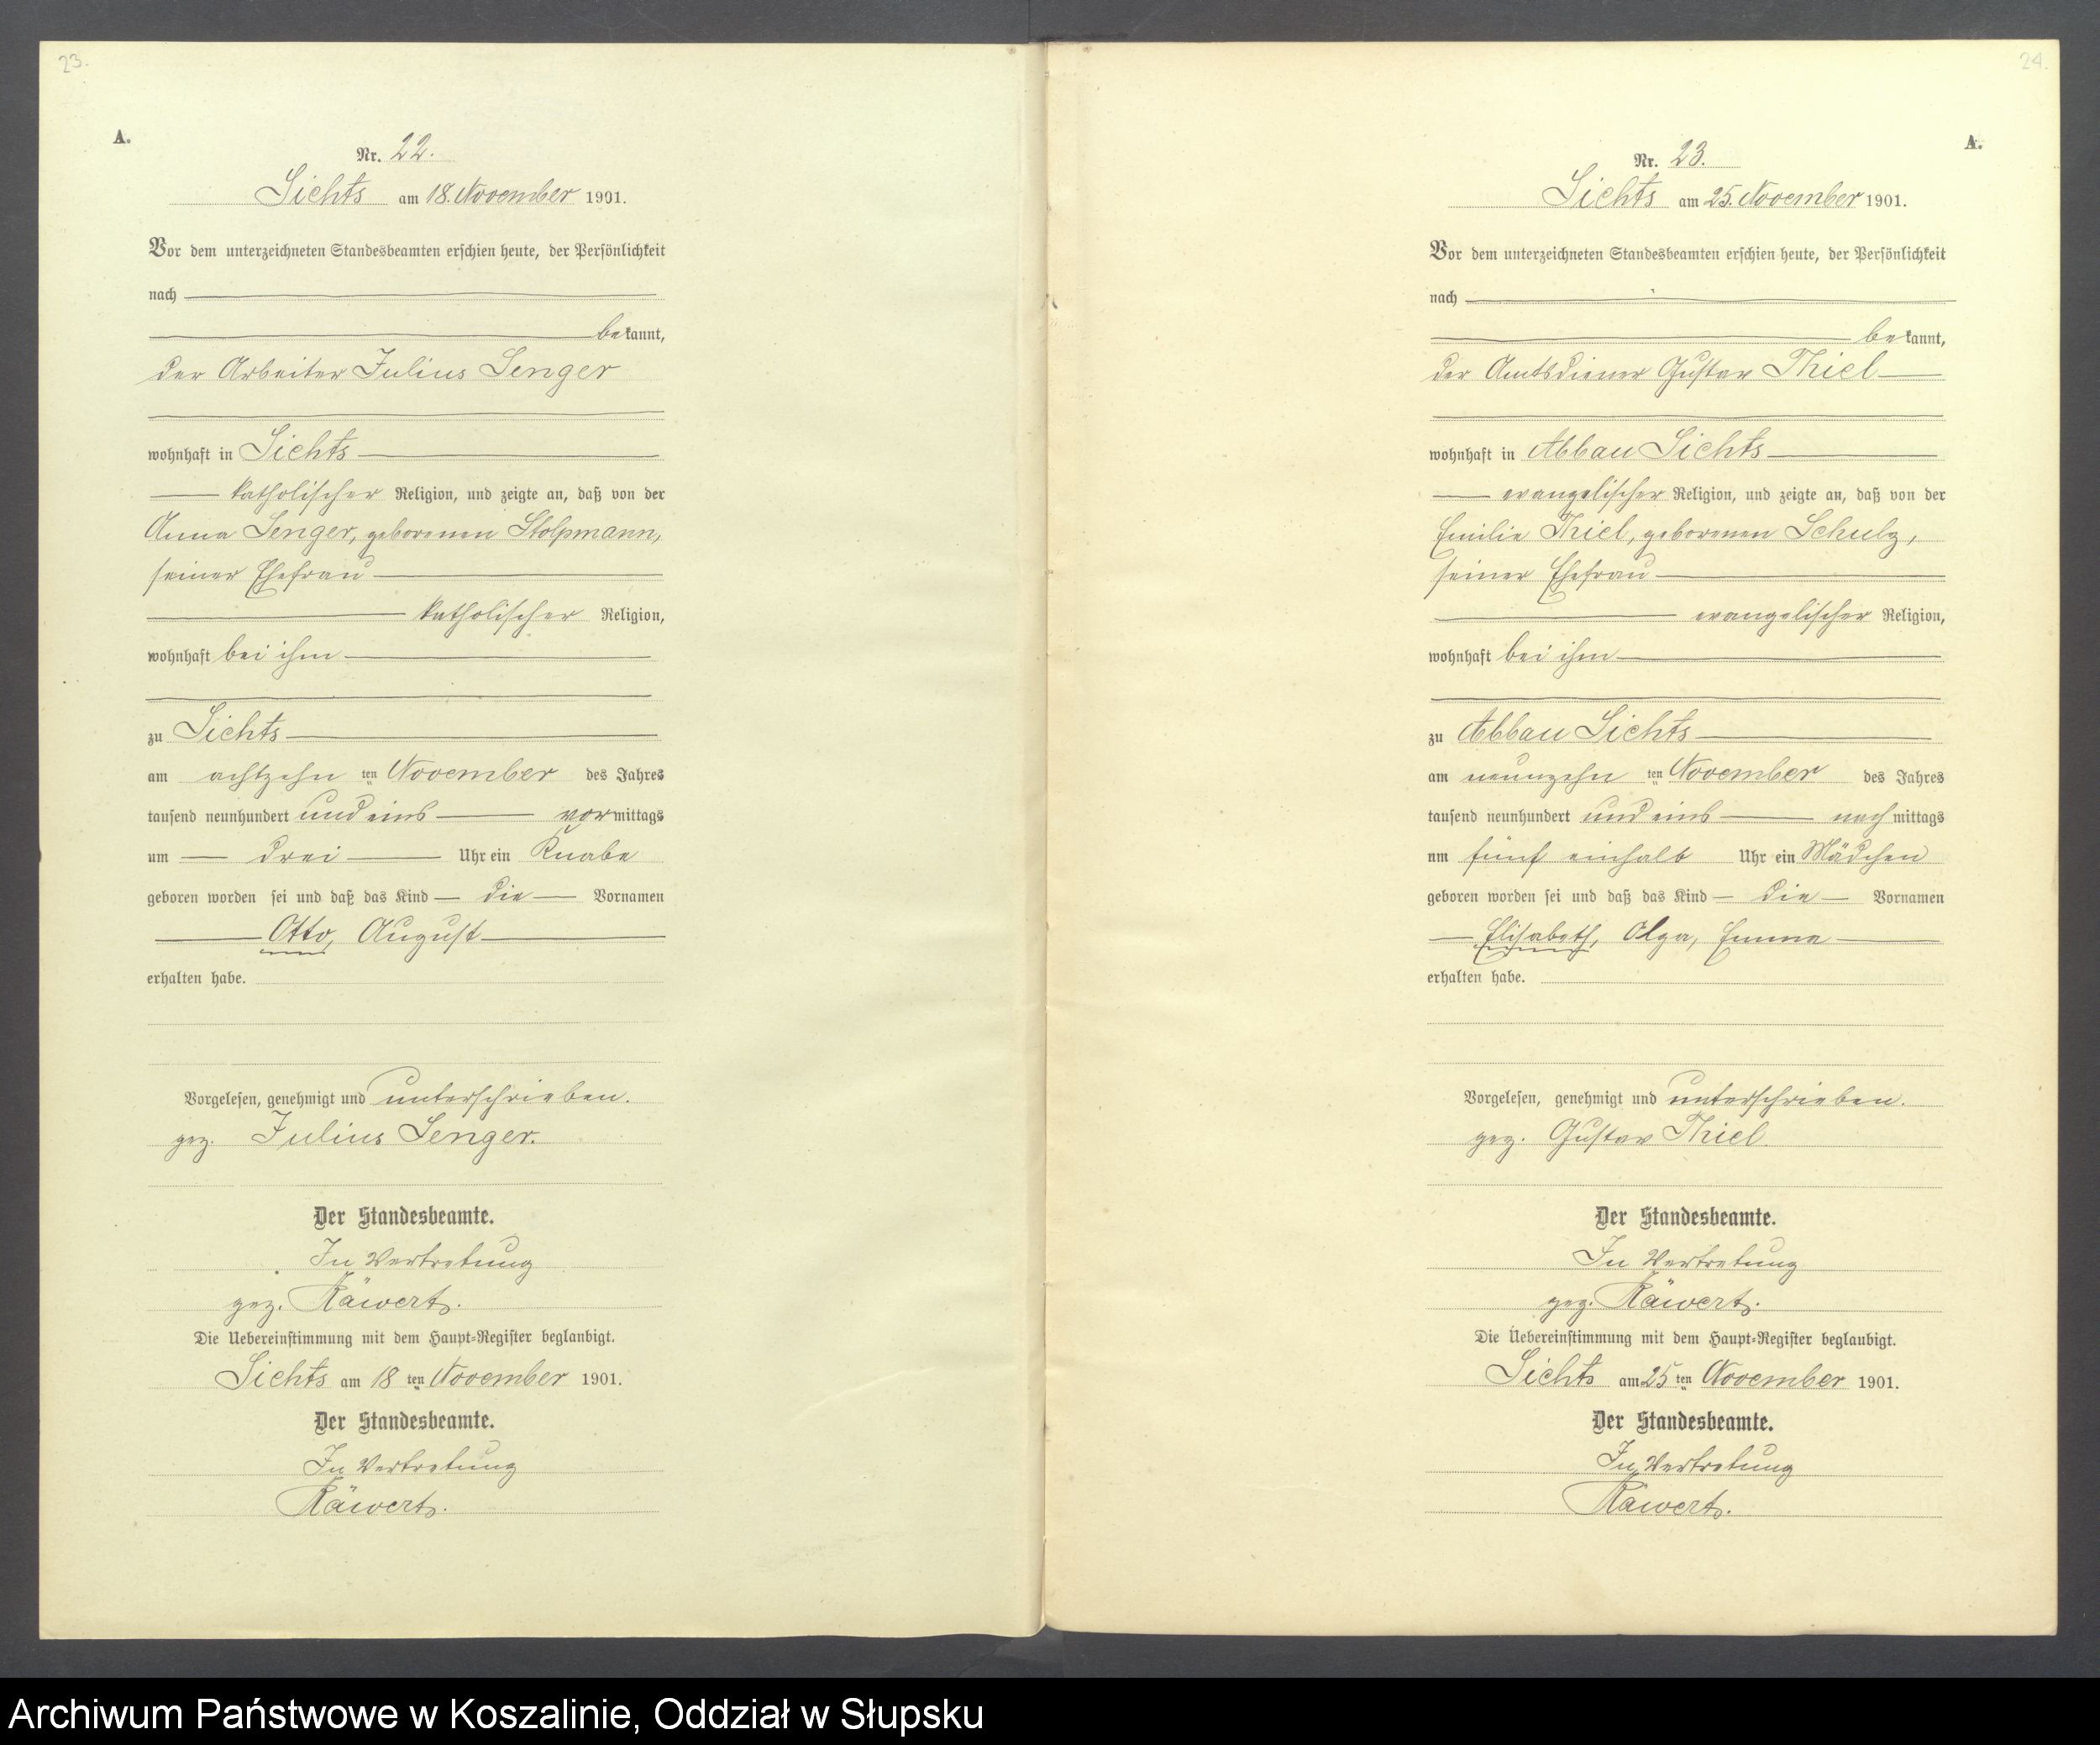 23.
A.
Nr. 22.
Sichts am 18. November 1901.
Vor dem unterzeichneten Standesbeamten erschien heute, der Persönlichkeit
nach
bekannt,
der Arbeiter Julius Senger
wohnhaft in Sichts
katholischer Religion, und zeigte an, daß von der
Anna Senger, geborenen Stolpmann,
seiner Ehefrau
katholischer Religion,
wohnhaft bei ihm
zu Sichts
am achtzehn ten November des Jahres
tausend neunhundert und eins vormittags
um drei Uhr ein Knabe
geboren worden sei und daß das Kind die Vornamen
Otto, August
erhalten habe.
Vorgelesen, genehmigt und unterschrieben.
gez. Julius Senger.
Der Standesbeamte.
In Vertretung
gez. Räwerts.
Die Uebereinstimmung mit dem Haupt-Register beglaubigt.
Sichts am 18 ten November 1901.
Der Standesbeamte.
In Vertretung
Räwerts.
24.
A.
Nr. 23.
Sichts am 25. November 1901.
Vor dem unterzeichneten Standesbeamten erschien heute, der Persönlichkeit
nach
bekannt,
der Amtsdiener Gustav Thiel
wohnhaft in Abbau Sichts
evangelischer Religion, und zeigte an, daß von der
Emilie Thiel, geborenen Schulz,
seiner Ehefrau
evangelischer Religion,
wohnhaft bei ihm
zu Abbau Sichts
am neunzehn ten November des Jahres
tausend neunhundert und eins nachmittags
um fünf einhalb Uhr ein Mädchen
geboren worden sei und daß das Kind die Vornamen
Elisabeth, Olga, Emma
erhalten habe.
Vorgelesen, genehmigt und unterschrieben.
gez. Gustav Thiel
Der Standesbeamte.
In Vertretung
gez. Räwerts.
Die Uebereinstimmung mit dem Haupt-Register beglaubigt.
Sichts am 25 ten November 1901.
Der Standesbeamte.
In Vertretung
Räwerts.
Archiwum Państwowe w Koszalinie, Oddział w Słupsku